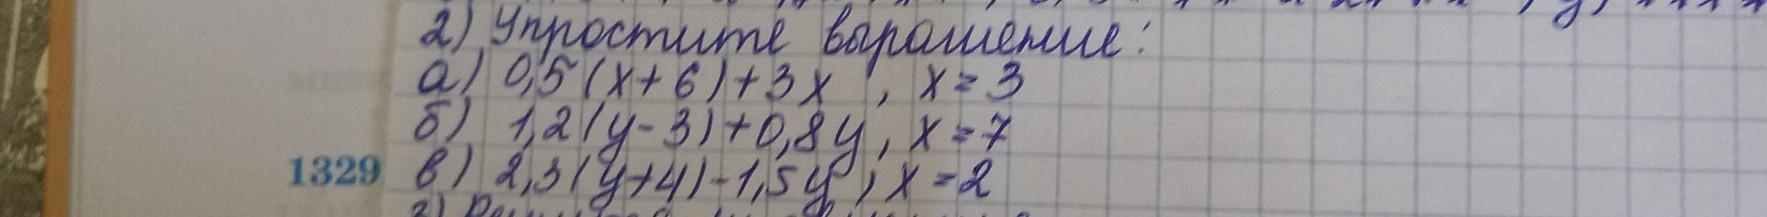 2) Упростите выражение:
а) 0,5(x+6)+3x, x=3
б) 1,2(y-3)+0,8y, x=7
1329 в) 2,3(y+4)-1,5y, x=2